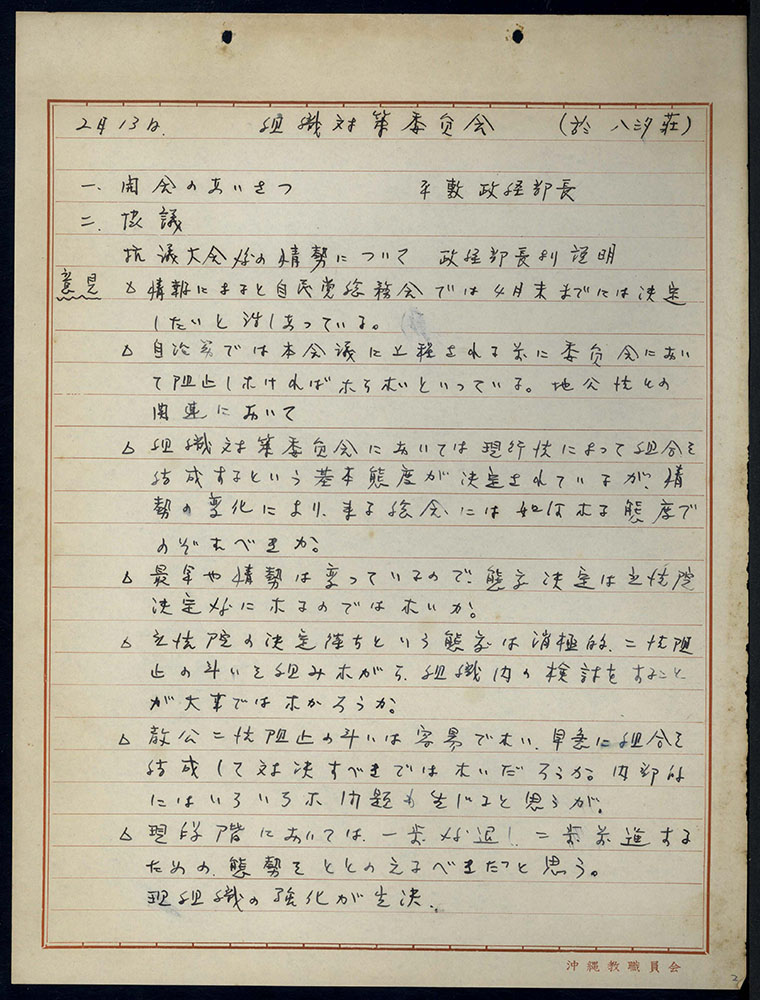 2月13日. 組織対策委員会 (於 八汐荘)
一. 開会のあいさつ 平敷政経部長
二. 協議
抗議大会後の情勢について 政経部長より説明
意見 △ 情報によると自民党総務会では4月末までには決定
したいと話しあっている。
△ 自治労では本会議に上程される前に委員会におい
て阻止しなければならないといっている。地公法との
関連において
△ 組織対策委員会においては現行法によって組合を
結成するという基本態度が決定されているが、情
勢の変化により、来る総会には如何なる態度で
のぞむべきか。
△ 最早や情勢は変っているので、態度決定は立法院
決定後になるのではないか。
△ 立法院の決定待ちという態度は消極的、二法阻
止の斗いを組みながら、組織内の検討をすること
が大事ではなかろうか。
△ 教公二法阻止の斗いは容易でない、早急に組合を
結成して対決すべきではないだろうか。内部的
にはいろいろな問題も生じると思うが。
△ 現段階においては、一歩後退し、二歩前進する
ための、態勢をととのえるべきだと思う。
現組織の強化が先決.
沖縄教職員会
2